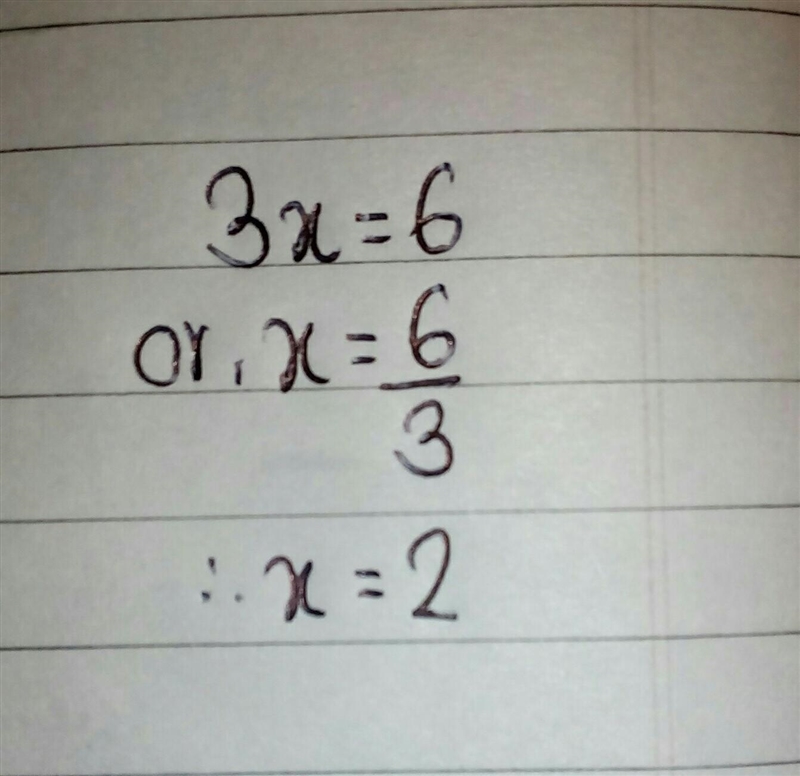 3x = 6
or, x = 6/3
∴ x = 2